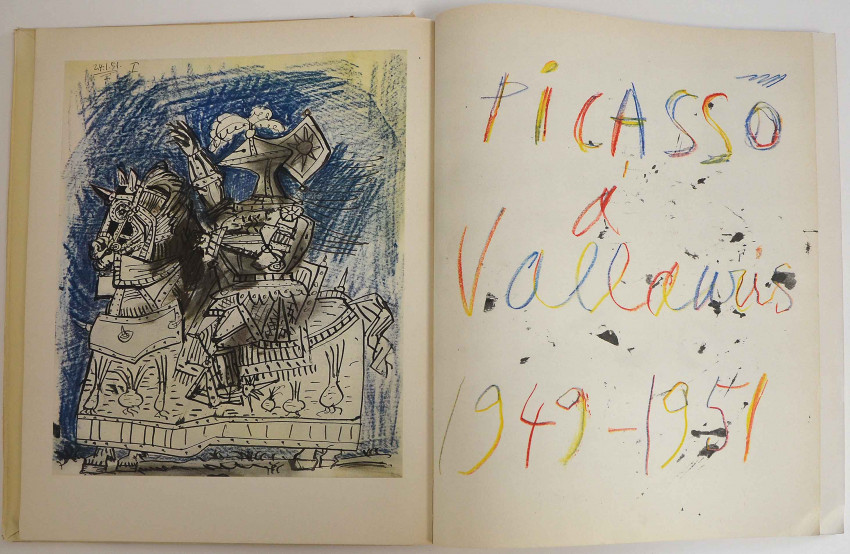 24.1.51.
I
PICASSO
à
Vallauris
1949-1951